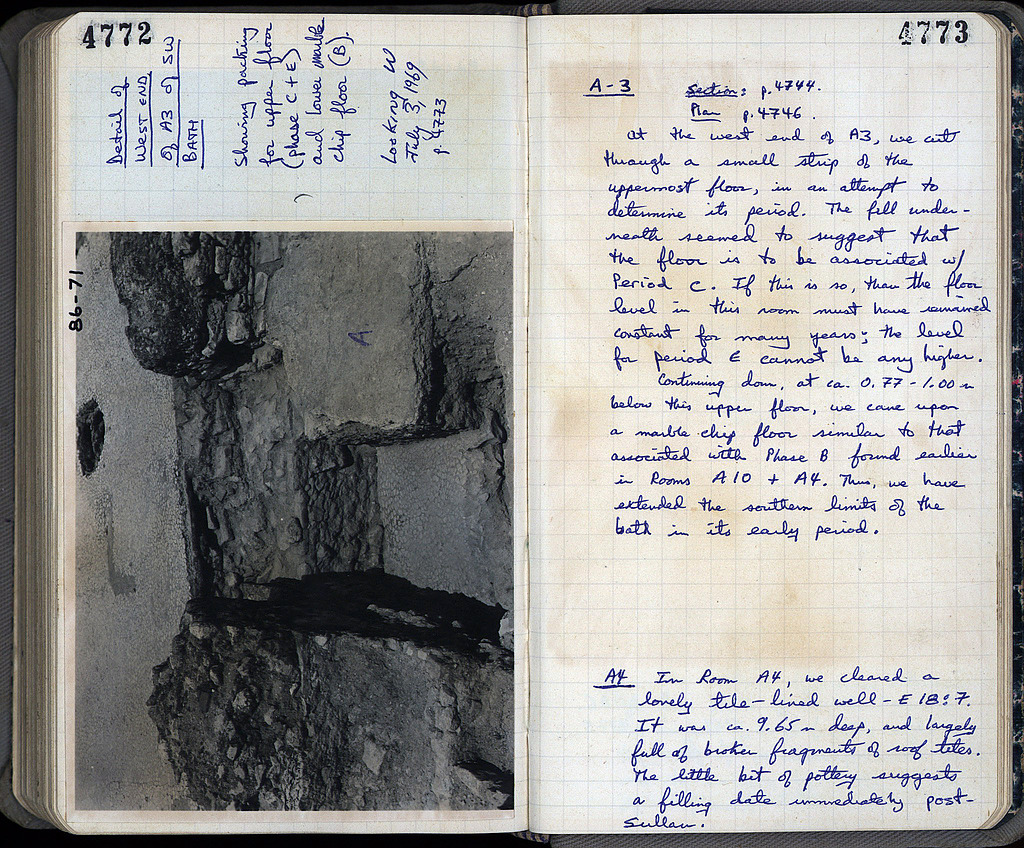 4772
Detail of
WEST END
of A3 of SW
BATH
Showing packing
for upper floor
(phase C + E)
and lower marble
chip floor (B).
Looking W
July 3, 1969
p. 4773
86-71
A
4773
A-3 Section: p. 4744.
Plan p. 4746.
At the west end of A3, we cut
through a small strip of the
uppermost floor, in an attempt to
determine its period. The fill under-
neath seemed to suggest that
the floor is to be associated w/
Period C. If this is so, than the floor
level in this room must have remained
constant for many years; the level
for period E cannot be any higher.
Continuing down, at ca. 0.77 - 1.00 m
below this upper floor, we came upon
a marble chip floor similar to that
associated with Phase B found earlier
in Rooms A10 + A4. Thus, we have
extended the southern limits of the
bath in its early period.
A4 In Room A4, we cleared a
lovely tile-lined well - E 18:7.
It was ca. 9.65 m deep, and largely
full of broken fragments of roof tiles.
The little bit of pottery suggests
a filling date immediately post-
Sullan.